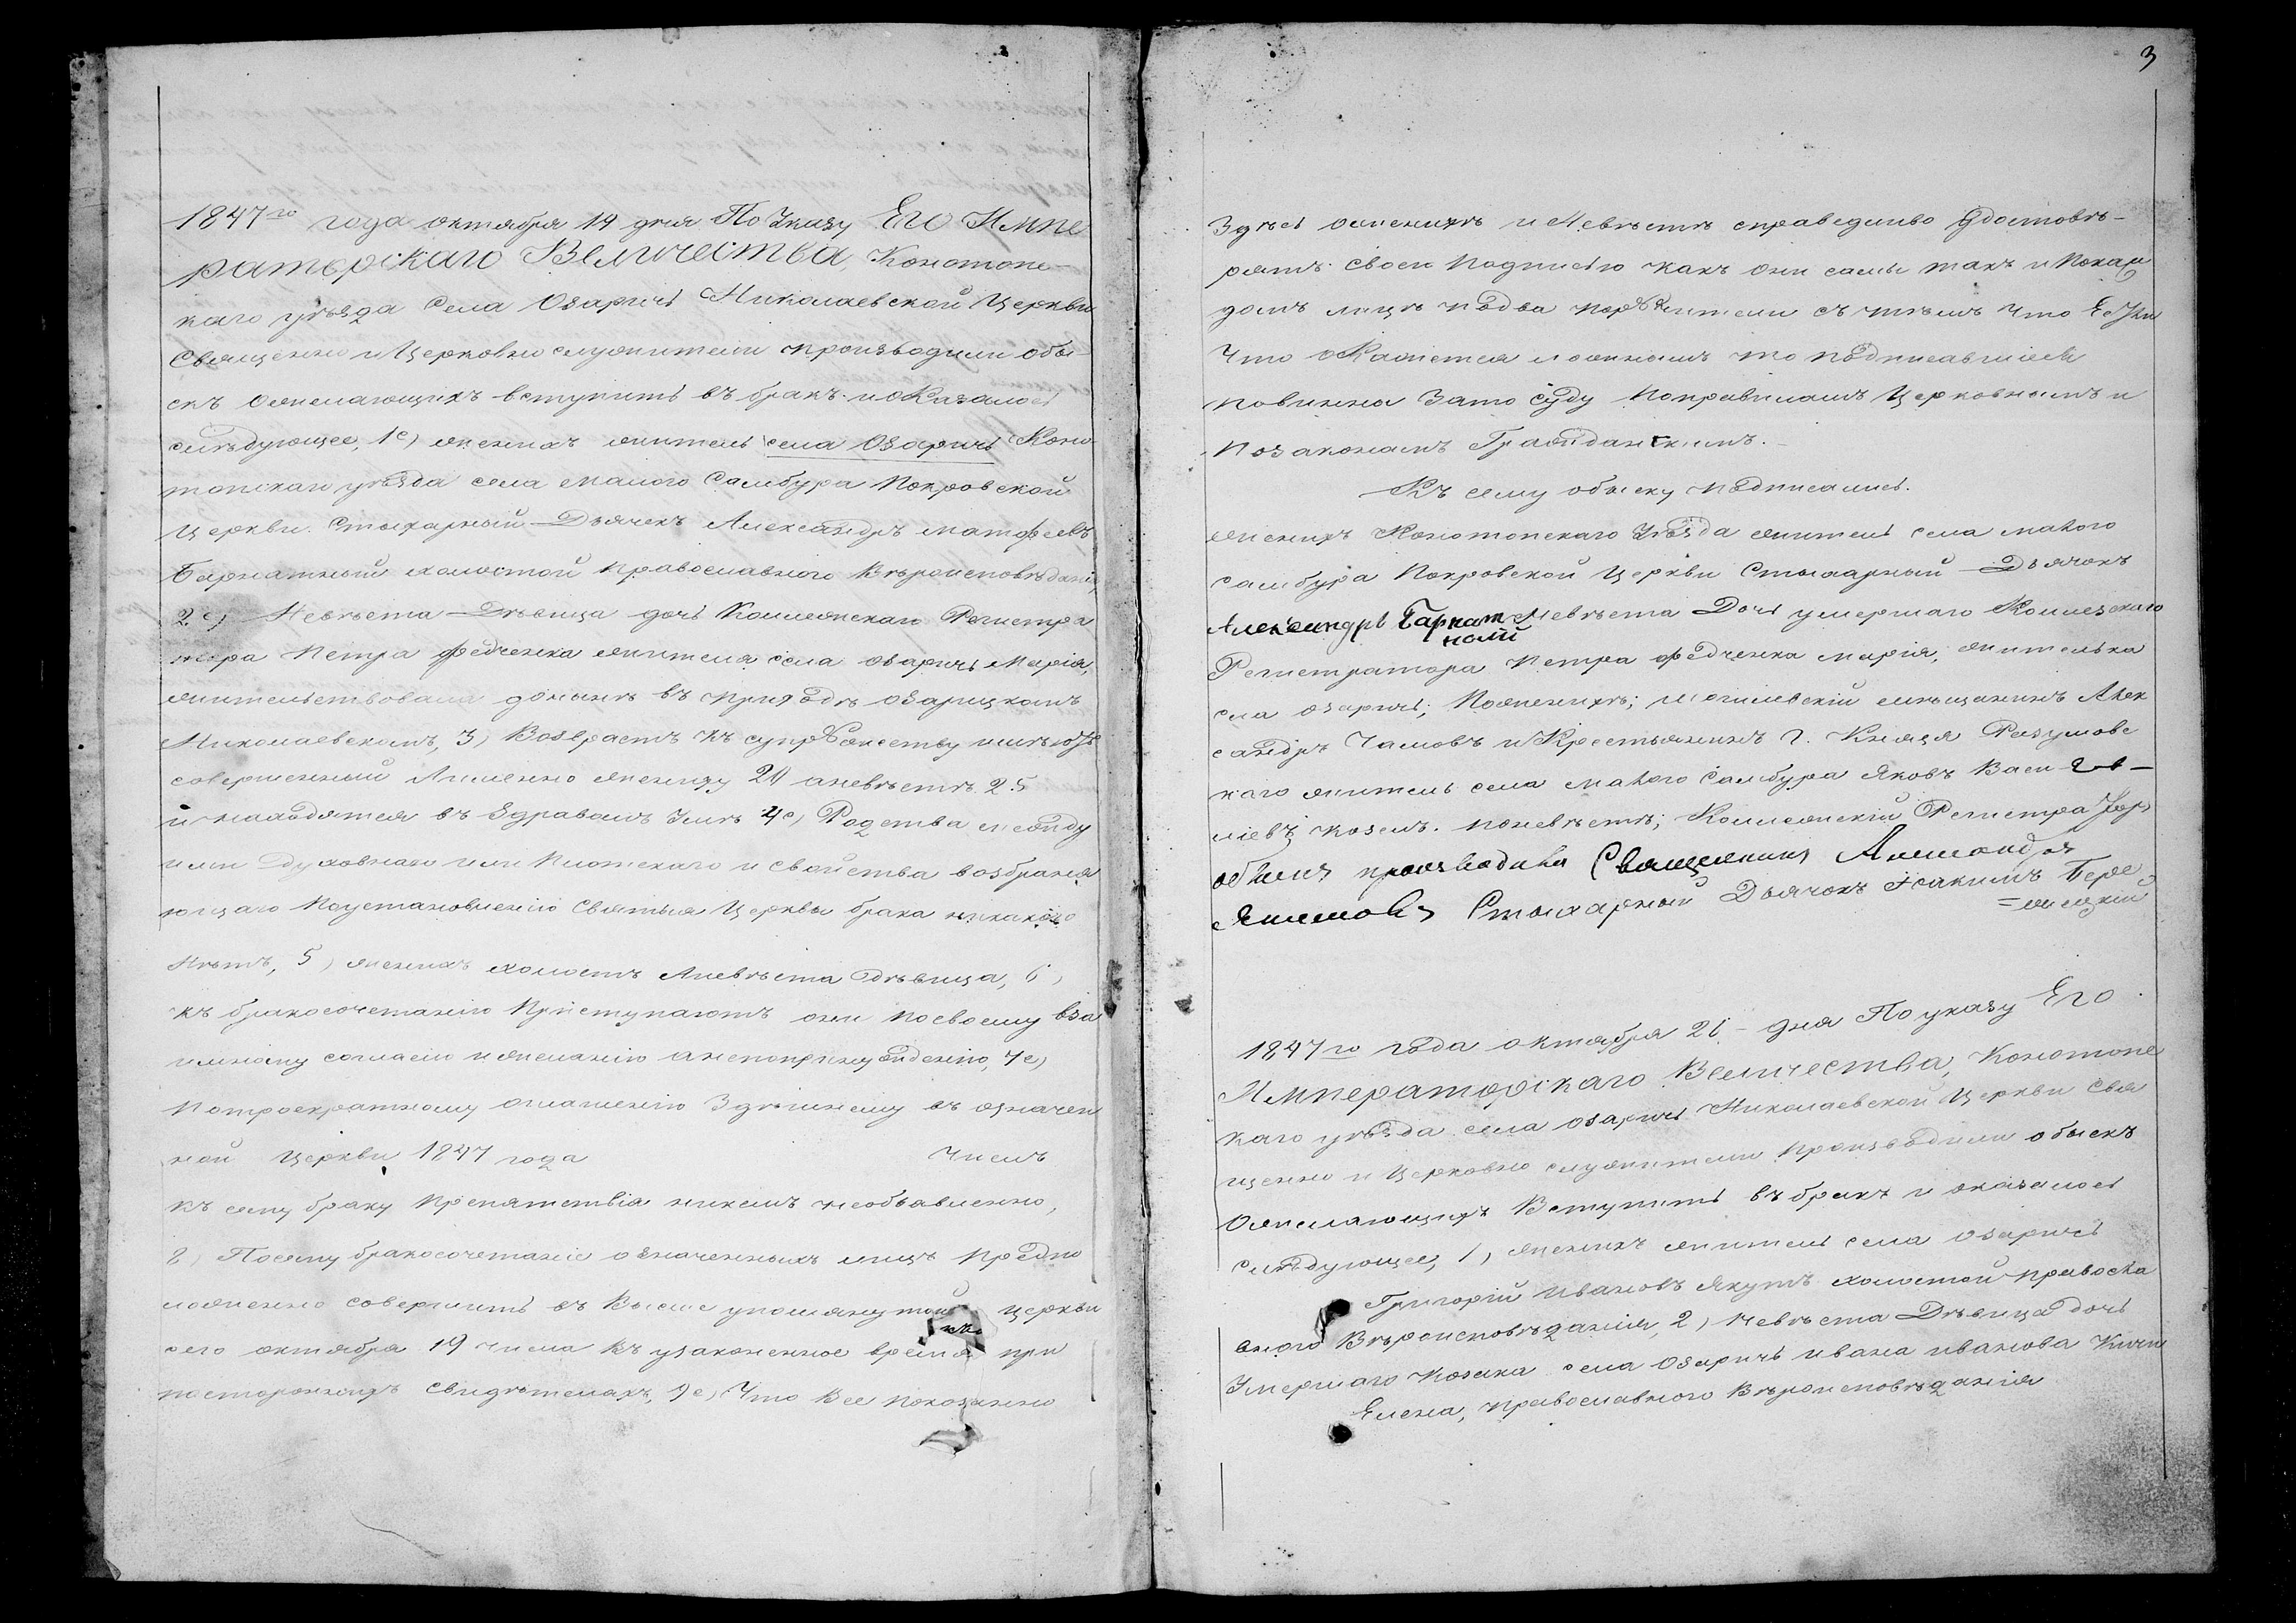 1847го года октября 14 дня По Указу Его Импе
раторскаго Величества, Конотопс-
каго уѣзда Села Озаричь Николаевской Церкви
Священно и Церковно служители производили обы-
скъ ожелающихъ вступить въ бракъ. и оказалось
слѣдующее, 1е) женихъ житель села Озаричь Коно
топскаго уѣзда села малого Самбура Покровской
Церкви. Стихарный Дьячекъ Александръ матфеевъ
Барнатный холостой православного Вѣроисповѣданія,
2е) Невѣста Дѣвица дочь Коллежскаго Регистра
тора Петра Федченка жителя села озаричь Марія,
жительствовала донынѣ въ приходѣ озарицкомъ
Николаевскомъ, 3) Возврастъ къ супружеству имѣютъ
совершенный Аименно жениху 20 аневѣстѣ 25
и находятся въ здравомъ Умѣ 4е) Родства между
ими Духовнаго или Плотскаго и свойства возбраня
ющаго Поустановленію Святыя Церквы брака никакого
Нѣтъ, 5) женихъ холостъ Аневѣста Дѣвица, 6)
къ бракосочетанію Приступаютъ они посвоему вза
имному согласію и желанію анепопринужденію, 7е)
потроекратному оглашенію Здѣшнему въ означен
ной Церкви 1847 года Числъ
къ сему браку Препятствія никемъ необъявленно,
8) Посему бракосочетаніе означенныхъ лицъ предпо
ложенно совершить въ Выше упомянутой Церкви
сего октября 19 числа въ узаконенное время при
постороннихъ свидѣтеляхъ, 9е) Что Все показанно
3
Здѣсь ожениxѣ и Невѣстѣ справедливо Удостовѣ-
ряютъ своею Подписью какъ они самы такъ и Покаж
домъ лицѣ подва поручители съ тѣмъ что Ежли
Что окажется ложнымъ то подписавшіеся
повинна Зато суду Поправиламъ Церковнымъ и
Позаконамъ Гражданскимъ.
Къ сему обыску подписались.
женихъ Конотопскаго Уѣзда житель села малого
самбура Покровской Церкви Стихарный Дьячокъ
Александръ Барнат Невѣста Дочь умершаго Коллезскаго
ный
Регистратора Петра Федченка марія, жителька
села озаричь; Поженихѣ; могилевскій мѣщанинъ Алек
сандръ Чамовъ и Крестьянинъ г. Князя Разумовс
каго житель села малого самбура Яковъ Васи
ліевъ козелъ. поневѣстѣ; Коллежскій Регистра
обыскъ производилъ Священникъ
Стихарный Дьячокъ Іоакимъ Бере
=жицкій
1847го года октября 26 - дня По указу Его
Императорскаго Величества, Конотопс
каго уѣзда села озаричь Николаевской Церкви Свя
щенно и Церковно служители Производили обыскъ
ожелающихъ Вступить въ бракъ и оказалось
слѣдующее, 1) женихъ житель села озаричь
Григорій Ивановъ Якутъ холостой правосла
вного Вѣроисповѣданія, 2) невѣста Дѣвица дочь
Умершаго козака села Озаричь ивана иванова
Елена, православного Вѣроисповѣданія